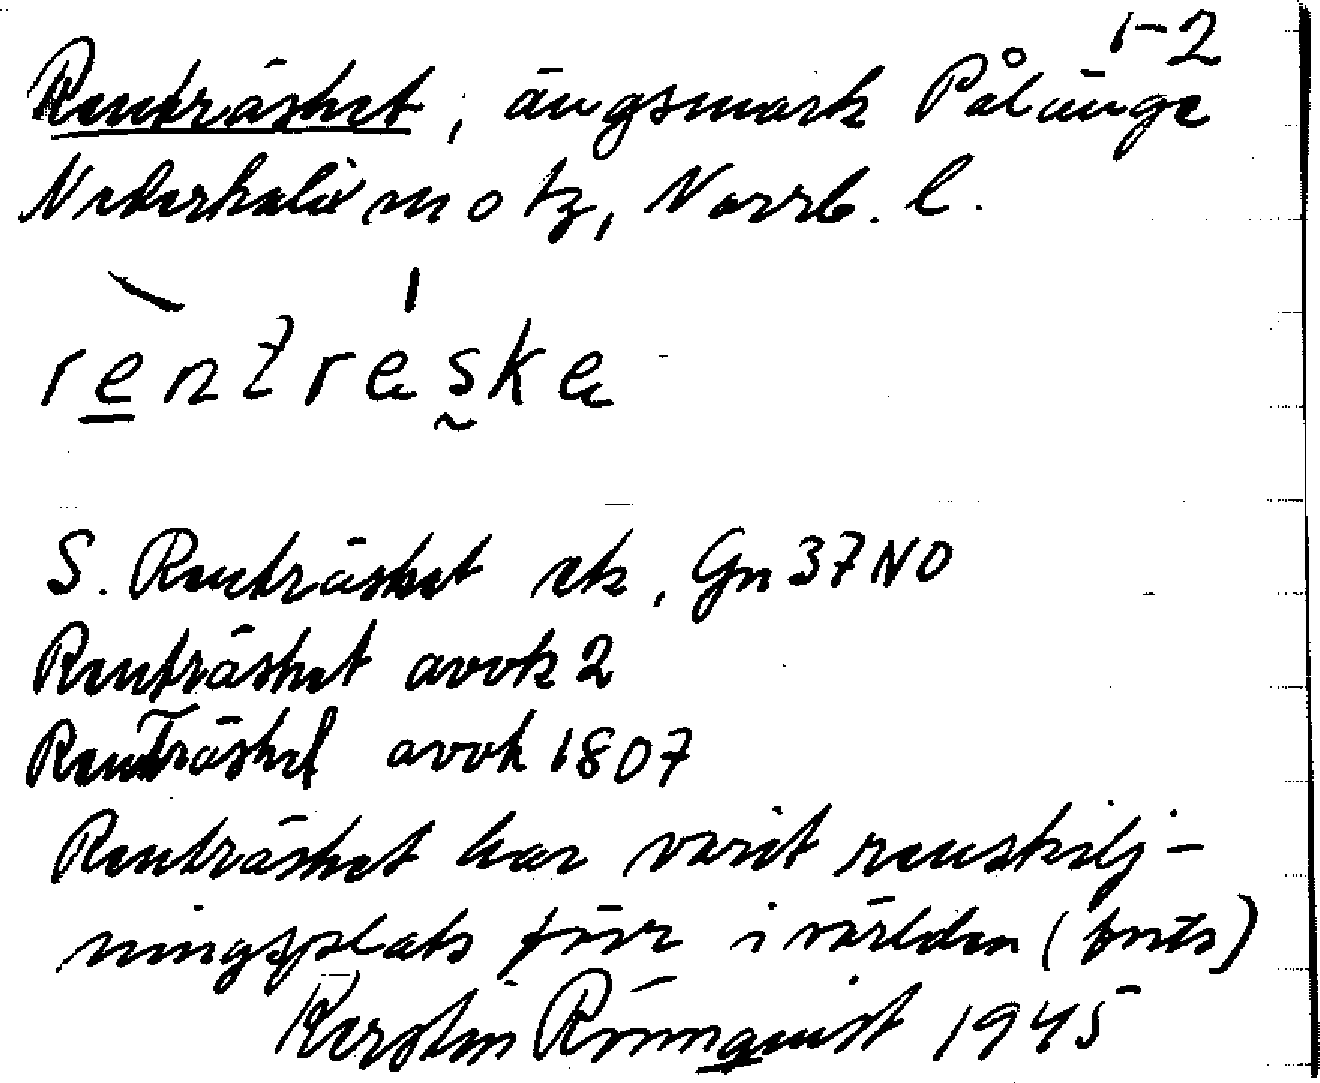 1-2
Renträsket, ängsmark Pålänge
Nederkalix sn o tg, Norrb. l.
rentreske
S. Renträsket ek, Gn 37 NO
Renträsket avvk 2
Renträsket avvk 1807
Renträsket har varit renskilj-
ningsplats förr i världen (forts)
Kerstin Rönnquist 1945